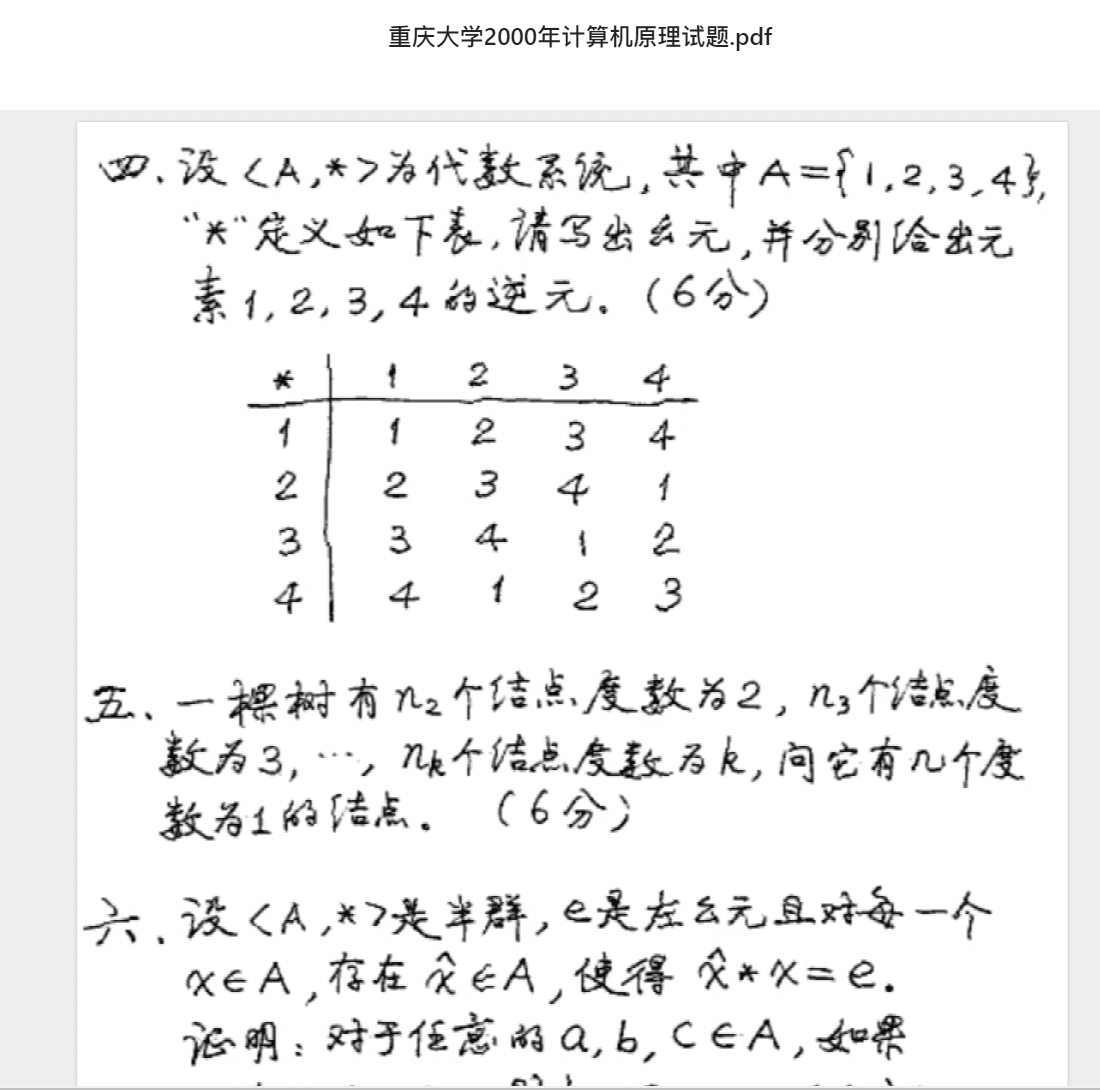 重庆大学2000年计算机原理试题.pdf
四、设<A,*>为代数系统,其中A={1,2,3,4},
"*"定义如下表,请写出幺元,并分别给出元
素1,2,3,4的逆元。(6分)
* 1 2 3 4
1 1 2 3 4
2 2 3 4 1
3 3 4 1 2
4 4 1 2 3
五、一棵树有n₂个结点度数为2,n₃个结点度
数为3,…,nₖ个结点度数为k,问它有几个度
数为1的结点。(6分)
六、设<A,*>是半群,e是左幺元且对每一个
x∈A,存在x̂∈A,使得x̂*x=e.
证明:对于任意的a,b,c∈A,如果